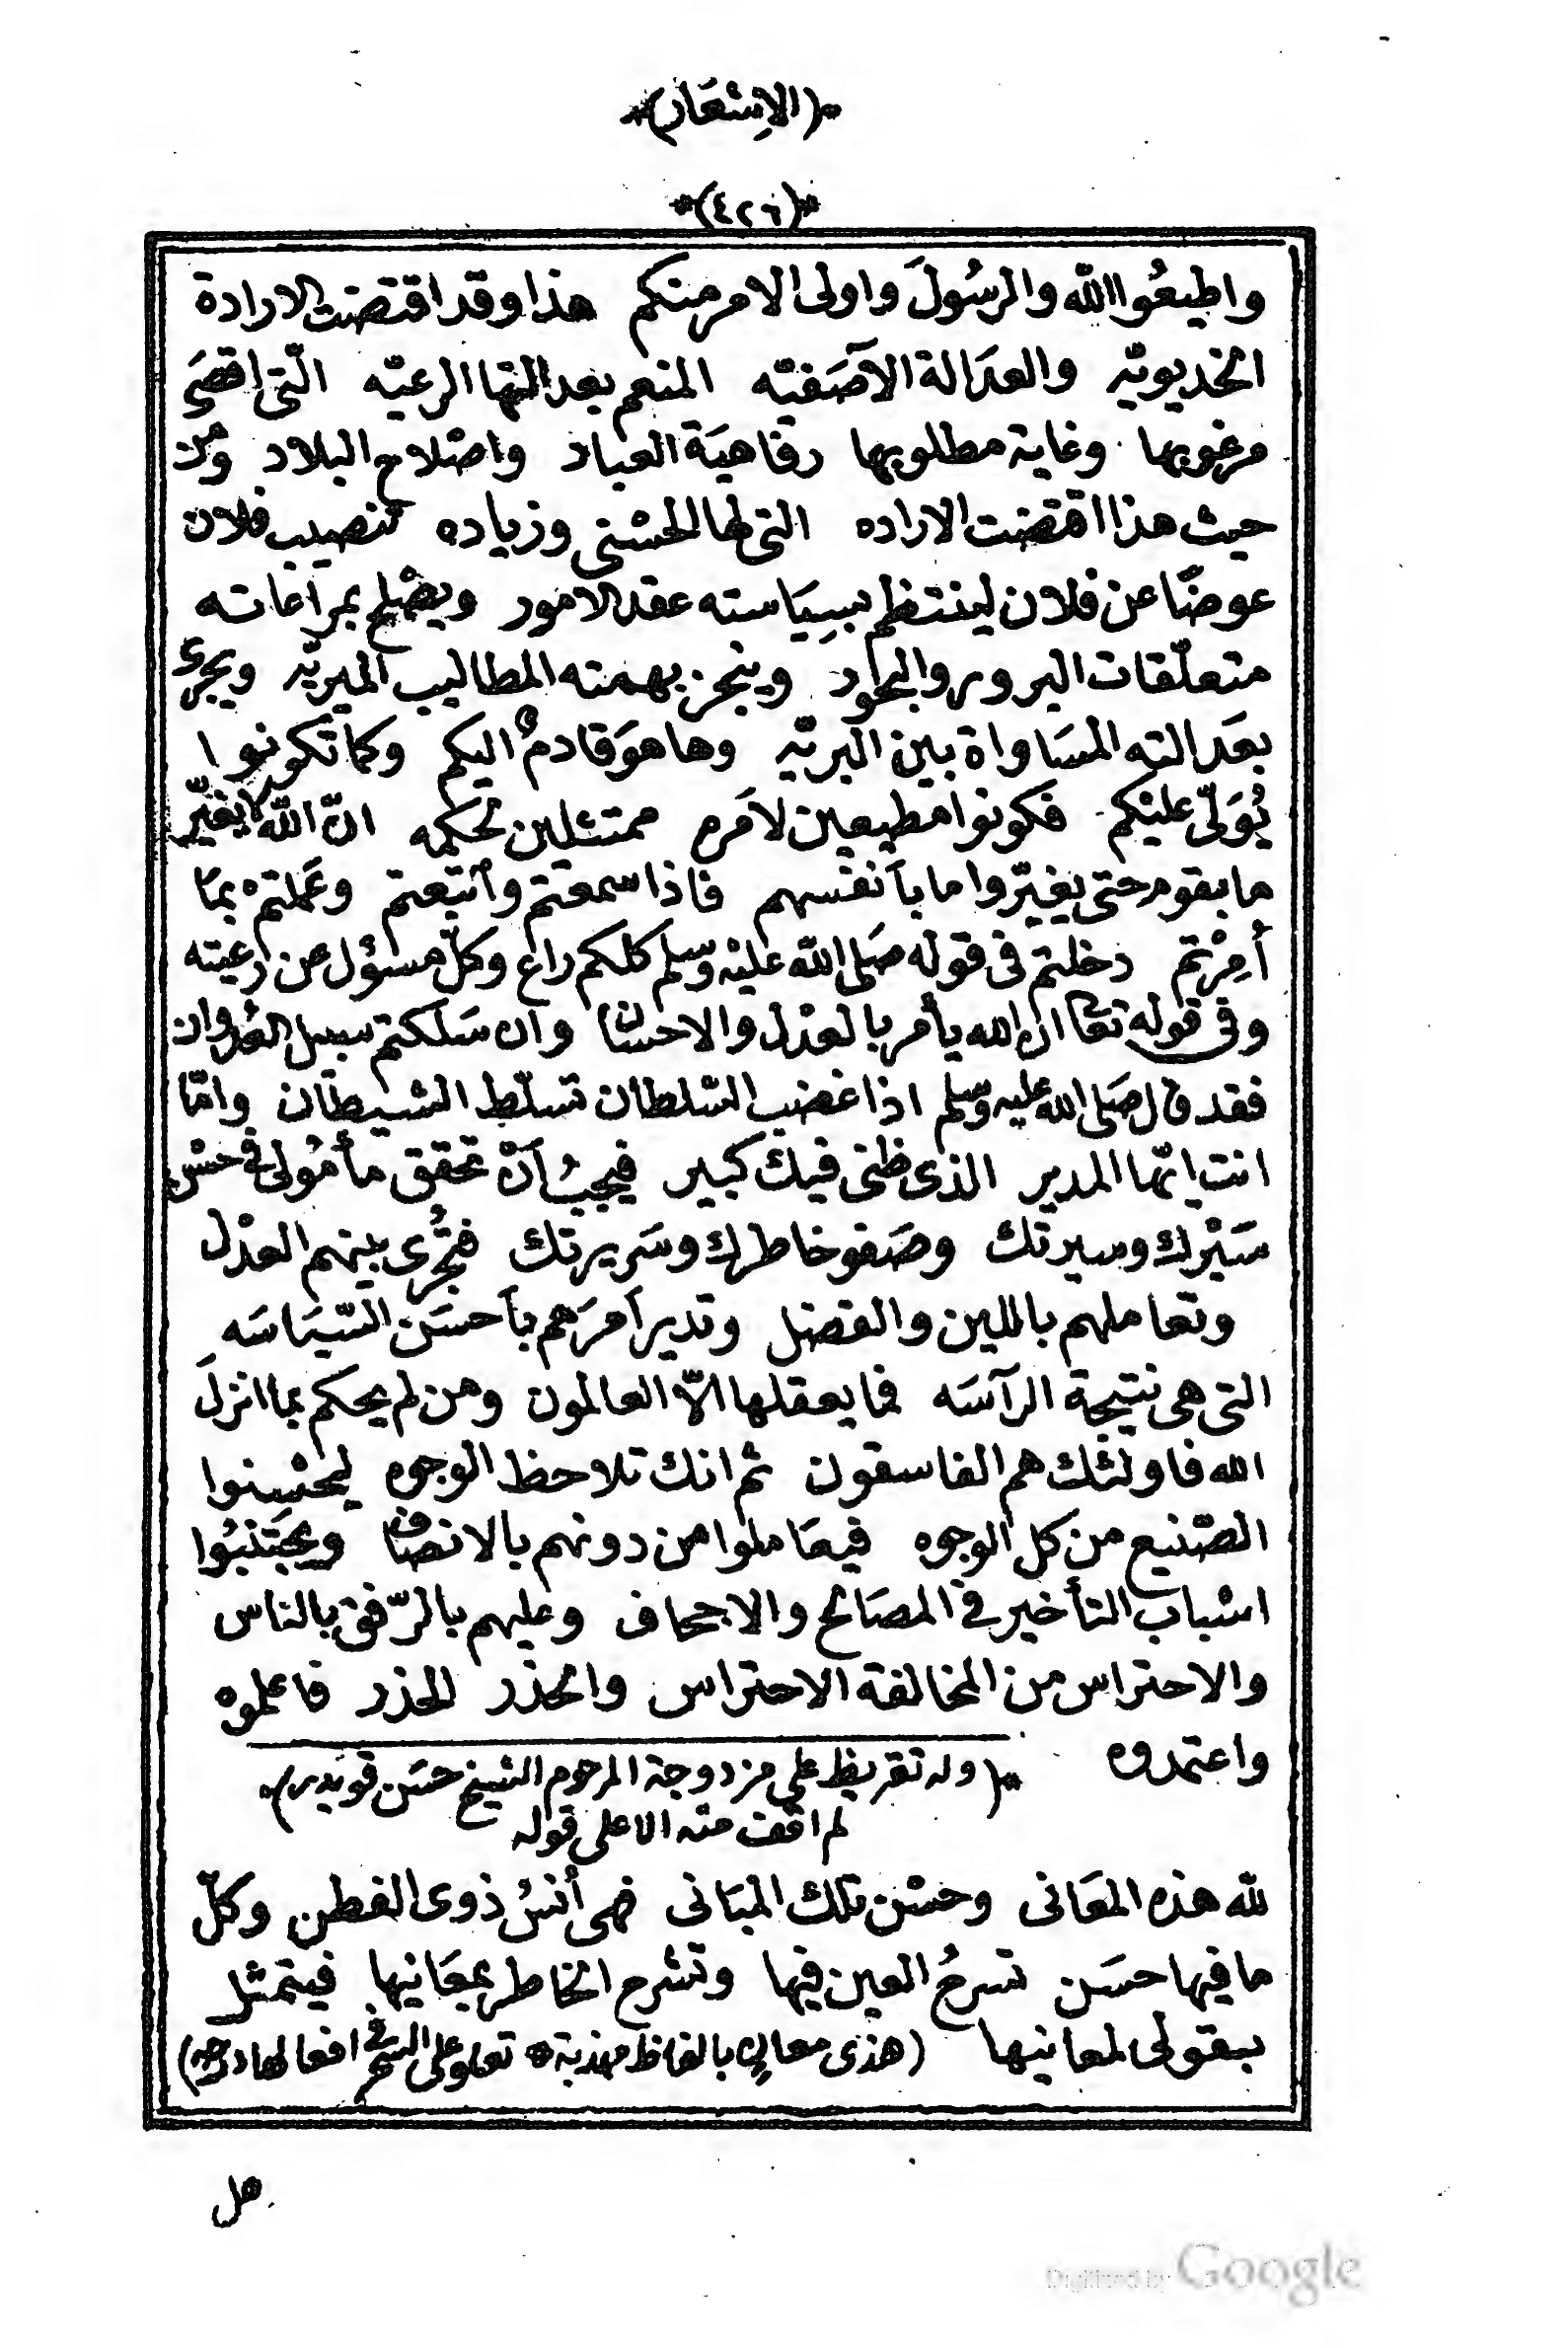 *(الاِشعَار)*
*(٤٢٦)*
واطيعُوا الله والرسُولَ واولى الامر منكم هذا وقد اقتضت الارادة
الخديويّه والعدَالة الآصَفيّه المنعم بعدالتها الرعيّه الّتى اقصَى
مرغوبها وغاية مطلوبها رفاهيَة العباد واصْلاح البلاد ومن
حيث هذا اقتضت الاراده التى لها الحسْنى وزياده تنصيب فلان
عوضًا عن فلان لينتظم بسِيَاسته عقد الامور ويصْلح بمراعاته
متعلّقات البرور والبحور وينجز بهمته المطاليب الميريّه ويجرى
بعَدالته المسَاواة بين البريّه وها هوَ قادمٌ اليكم وكما تكونوا
يُوَلّى عليْكم فكونوا مطيعين لاَمره ممتثلين لحكمه انّ اللّه لا يغيّر
ما بقوم حتى يغيّروا ما بأَنفسهم فاذا سمعتم وأتبعتم وعَملتمْ بمَا
أُمِرْتم دخلتم فى قوله صَلى الله عليْه وسلم كلكم راع وكلّ مسؤل عن رعيته
وفى قوله تعالى ان الله يأمر بالعدْل والاحسَان وان سَلكتم سبيل العُدوان
فقد قال صَلى الله عليه وسلم اذا غضب السّلطان تسلّط الشيطَان وامّا
انت ايّها المدير الذى ظنى فيك كبير فيجبُ أَنْ تحقق مأمُولى فى حسْن
سَيْرك وسيرتك وصَفو خاطرك وسَريرتك فتُجْرى بينهم العدْل
وتعاملهم باللين والفضل وتدير أَمرَهم بأَحسَن السّيَاسَه
التى هى نتيجة الرآسَه فما يعقلها الّا العالمون ومن لم يحكم بما انزلَ
الله فاولئك هم الفاسقون ثم انك تلاحظ الوجوه ليحْسِنوا
الصّنيع من كل الوجوه فيعَاملوا من دونهم بالانصَاف ويجتَنبُوا
اسْباب التأخير فى المصَالح والاجحاف وعليهم بالرّفق بالناس
والاحتراس من المخالفة الاحتراس والحذر الحذر فاعلموه
واعتمدوه *(وله تقريظ على مزدوجة المرحوم الشيخ حسَن قويدر)*
لم اقف منه الا على قوله
لله هذه المعَانى وحسْن تلك المبَانى فهى أُنسُ ذوى الفطن وكلّ
ما فيها حسَن تسرحُ العين فيها وتشرح الخاطر بمعَانيها فيتمثل
بقولى لمعانيها (هذى معانٍ بالفاظ مهذبة * تعلو على السحر افعالها درجه)
هل
Digitized by Google